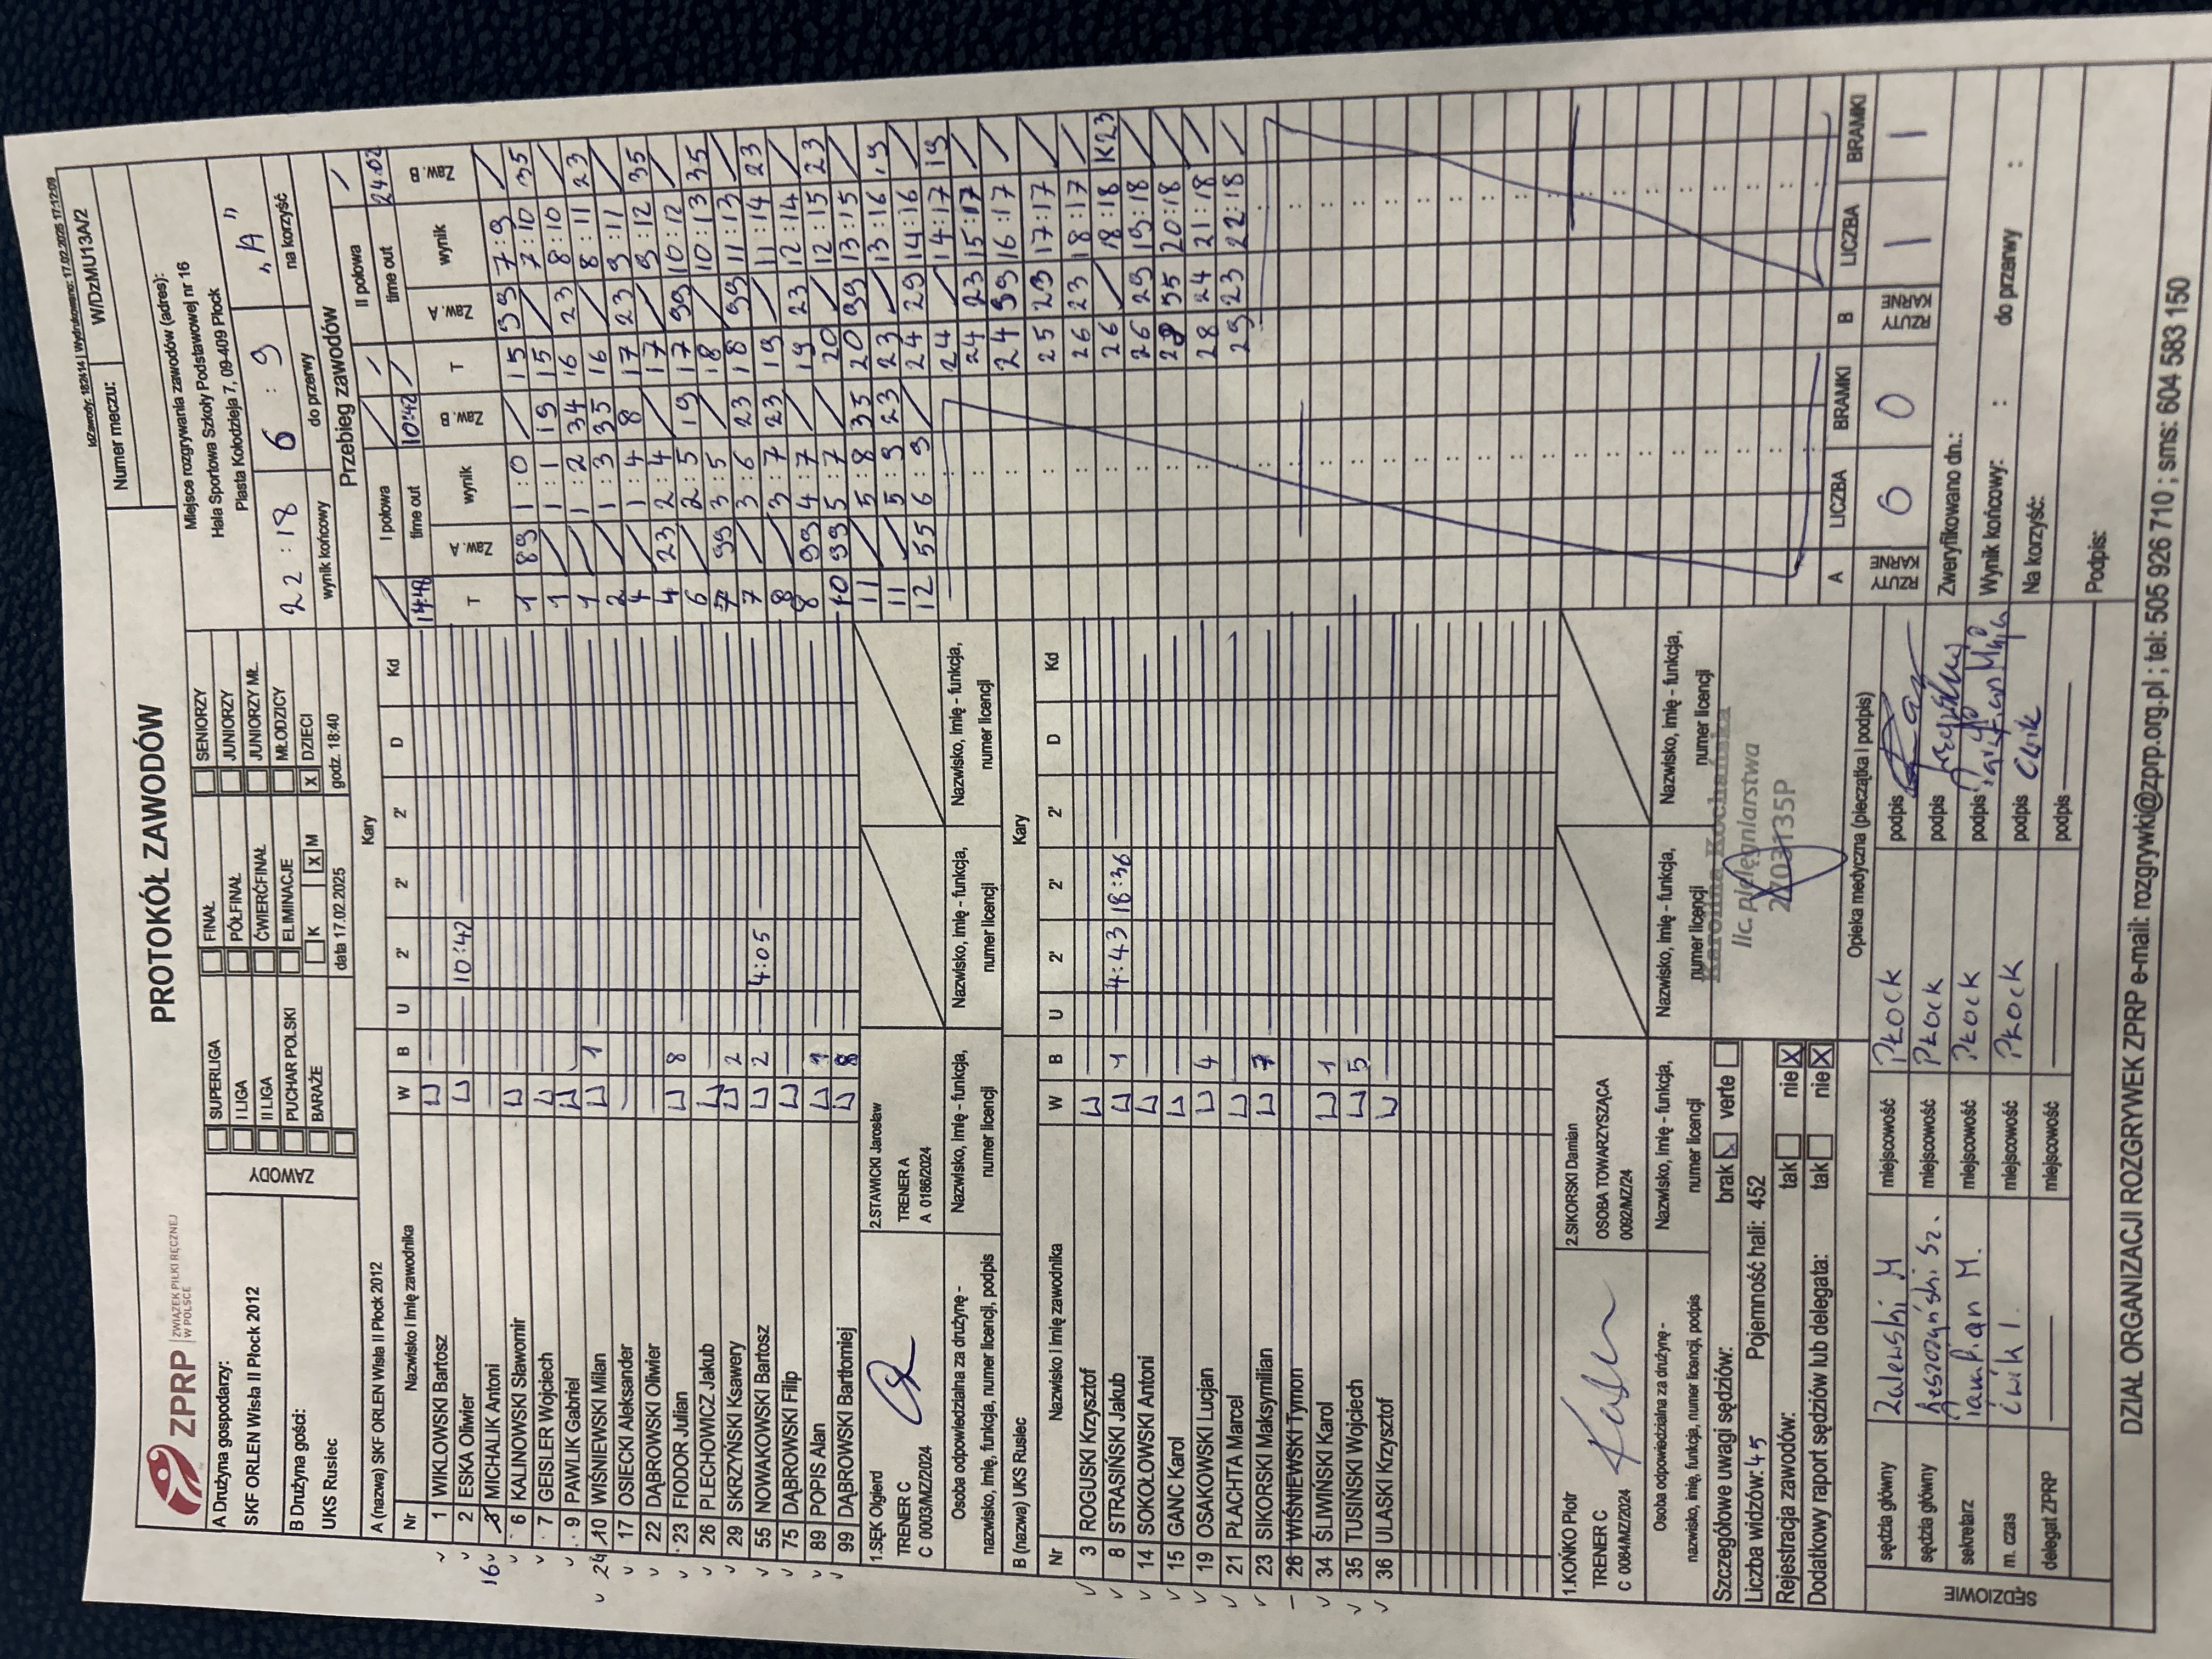 IdZawody: 182414 | Wydrukowano: 17.02.2025 17:12:09
ZPRP ZWIĄZEK PIŁKI RĘCZNEJ W POLSCE
PROTOKÓŁ ZAWODÓW
Numer meczu: W/DzMU13A/2
A Drużyna gospodarzy:
SKF ORLEN Wisła II Płock 2012
B Drużyna gości:
UKS Rusiec
ZAWODY
SUPERLIGA
I LIGA
II LIGA
PUCHAR POLSKI
BARAŻE
FINAŁ
PÓŁFINAŁ
ĆWIERĆFINAŁ
ELIMINACJE
K X M
data 17.02.2025
SENIORZY
JUNIORZY
JUNIORZY MŁ.
MŁODZICY
X DZIECI
godz. 18:40
Miejsce rozgrywania zawodów (adres):
Hala Sportowa Szkoły Podstawowej nr 16
Piasta Kołodzieja 7, 09-409 Płock
22 : 18 6 : 9 "A"
wynik końcowy do przerwy na korzyść
A (nazwa) SKF ORLEN Wisła II Płock 2012
Kary
Nr Nazwisko i imię zawodnika W B U 2' 2' 2' D Kd
1 WIKLOWSKI Bartosz
2 ESKA Oliwier 10:42
16 MICHALIK Antoni
6 KALINOWSKI Sławomir
7 GEISLER Wojciech
9 PAWLIK Gabriel
24 10 WIŚNIEWSKI Milan 1
17 OSIECKI Aleksander
22 DĄBROWSKI Oliwier
23 FIODOR Julian 8
26 PLECHOWICZ Jakub
29 SKRZYŃSKI Ksawery 2
55 NOWAKOWSKI Bartosz 2 4:05
75 DĄBROWSKI Filip
89 POPIS Alan 1
99 DĄBROWSKI Bartłomiej 8
1.SĘK Olgierd
TRENER C
C 0003/MZ/2024
2.STAWICKI Jarosław
TRENER A
A 0186/2024
Osoba odpowiedzialna za drużynę - nazwisko, imię, funkcja, numer licencji, podpis
Nazwisko, imię - funkcja, numer licencji
Nazwisko, imię - funkcja, numer licencji
Nazwisko, imię - funkcja, numer licencji
B (nazwa) UKS Rusiec
Kary
Nr Nazwisko i imię zawodnika W B U 2' 2' 2' D Kd
3 ROGUSKI Krzysztof
8 STRASIŃSKI Jakub 1 4:43 18:36
14 SOKOŁOWSKI Antoni
15 GANC Karol
19 OSAKOWSKI Lucjan 4
21 PŁACHTA Marcel
23 SIKORSKI Maksymilian 7
26 WIŚNIEWSKI Tymon
34 ŚLIWIŃSKI Karol 1
35 TUSIŃSKI Wojciech 5
36 ULASKI Krzysztof
1.KOŃKO Piotr
TRENER C
C 0084/MZ/2024
2.SIKORSKI Damian
OSOBA TOWARZYSZĄCA
0092/MZ/24
Osoba odpowiedzialna za drużynę - nazwisko, imię, funkcja, numer licencji, podpis
Nazwisko, imię - funkcja, numer licencji
Nazwisko, imię - funkcja, numer licencji
Nazwisko, imię - funkcja, numer licencji
Przebieg zawodów
I połowa II połowa
14:48 time out 10:42 time out 24:02
T Zaw. A wynik Zaw. B
1 89 1 : 0
1 1 : 1 19
1 1 : 2 34
2 1 : 3 35
4 1 : 4 8
4 23 2 : 4
6 2 : 5 19
7 99 3 : 5
7 3 : 6 23
8 3 : 7 23
8 99 4 : 7
10 99 5 : 7
11 5 : 8 35
11 5 : 9 23
12 55 6 : 9
T Zaw. A wynik Zaw. B
15 99 7 : 9
15 7 : 10 35
16 23 8 : 10
16 8 : 11 23
17 23 9 : 11
17 9 : 12 35
17 99 10 : 12
18 10 : 13 35
18 99 11 : 13
19 11 : 14 23
19 23 12 : 14
20 12 : 15 23
20 99 13 : 15
23 13 : 16 19
24 29 14 : 16
24 14 : 17 19
24 23 15 : 17
24 99 16 : 17
25 23 17 : 17
26 23 18 : 17
26 18 : 18 K23
26 29 19 : 18
28 55 20 : 18
28 24 21 : 18
29 23 22 : 18
Szczegółowe uwagi sędziów: brak verte
Liczba widzów: 45 Pojemność hali: 452
Rejestracja zawodów: tak nie X
Dodatkowy raport sędziów lub delegata: tak nie X
Karolina Kochańska
lic. pielęgniarstwa
2203135P
Opieka medyczna (pieczątka i podpis)
A LICZBA BRAMKI B LICZBA BRAMKI
RZUTY KARNE 0 0 RZUTY KARNE 1 1
SĘDZIOWIE
sędzia główny Zalewski M miejscowość Płock podpis
sędzia główny Leszczyński Sz. miejscowość Płock podpis
sekretarz M. miejscowość Płock podpis
m. czas Ćwik I. miejscowość Płock podpis Ćwik
delegat ZPRP miejscowość podpis
Zweryfikowano dn.:
Wynik końcowy: : do przerwy :
Na korzyść:
Podpis:
DZIAŁ ORGANIZACJI ROZGRYWEK ZPRP e-mail: rozgrywki@zprp.org.pl ; tel: 505 926 710 ; sms: 604 583 150